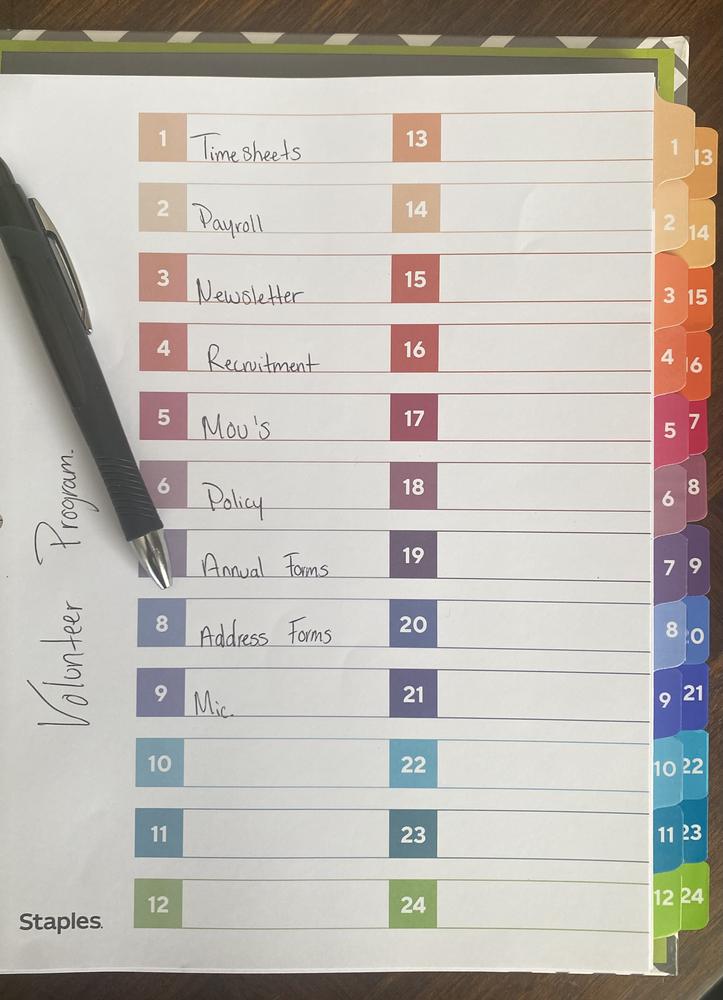 1 Timesheets
2 Payroll
3 Newsletter
4 Recruitment
5 Mou's
6 Policy
Annual Forms
8 Address Forms
9 Mic.
10
11
12
13
14
15
16
17
18
19
20
21
22
23
24
Volunteer Program.
Staples
1
2
3
4
5
6
7
8
9
10
11
12
13
14
15
16
7
8
9
0
21
22
23
24